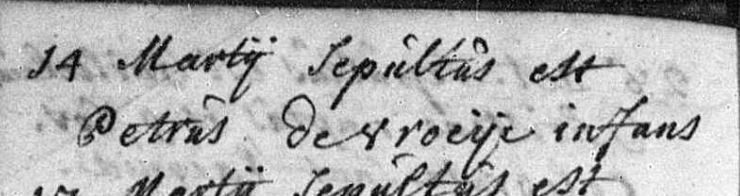 14 Martij Sepultus est
Petrus De vroeije infans
17 Martij Sepultus est